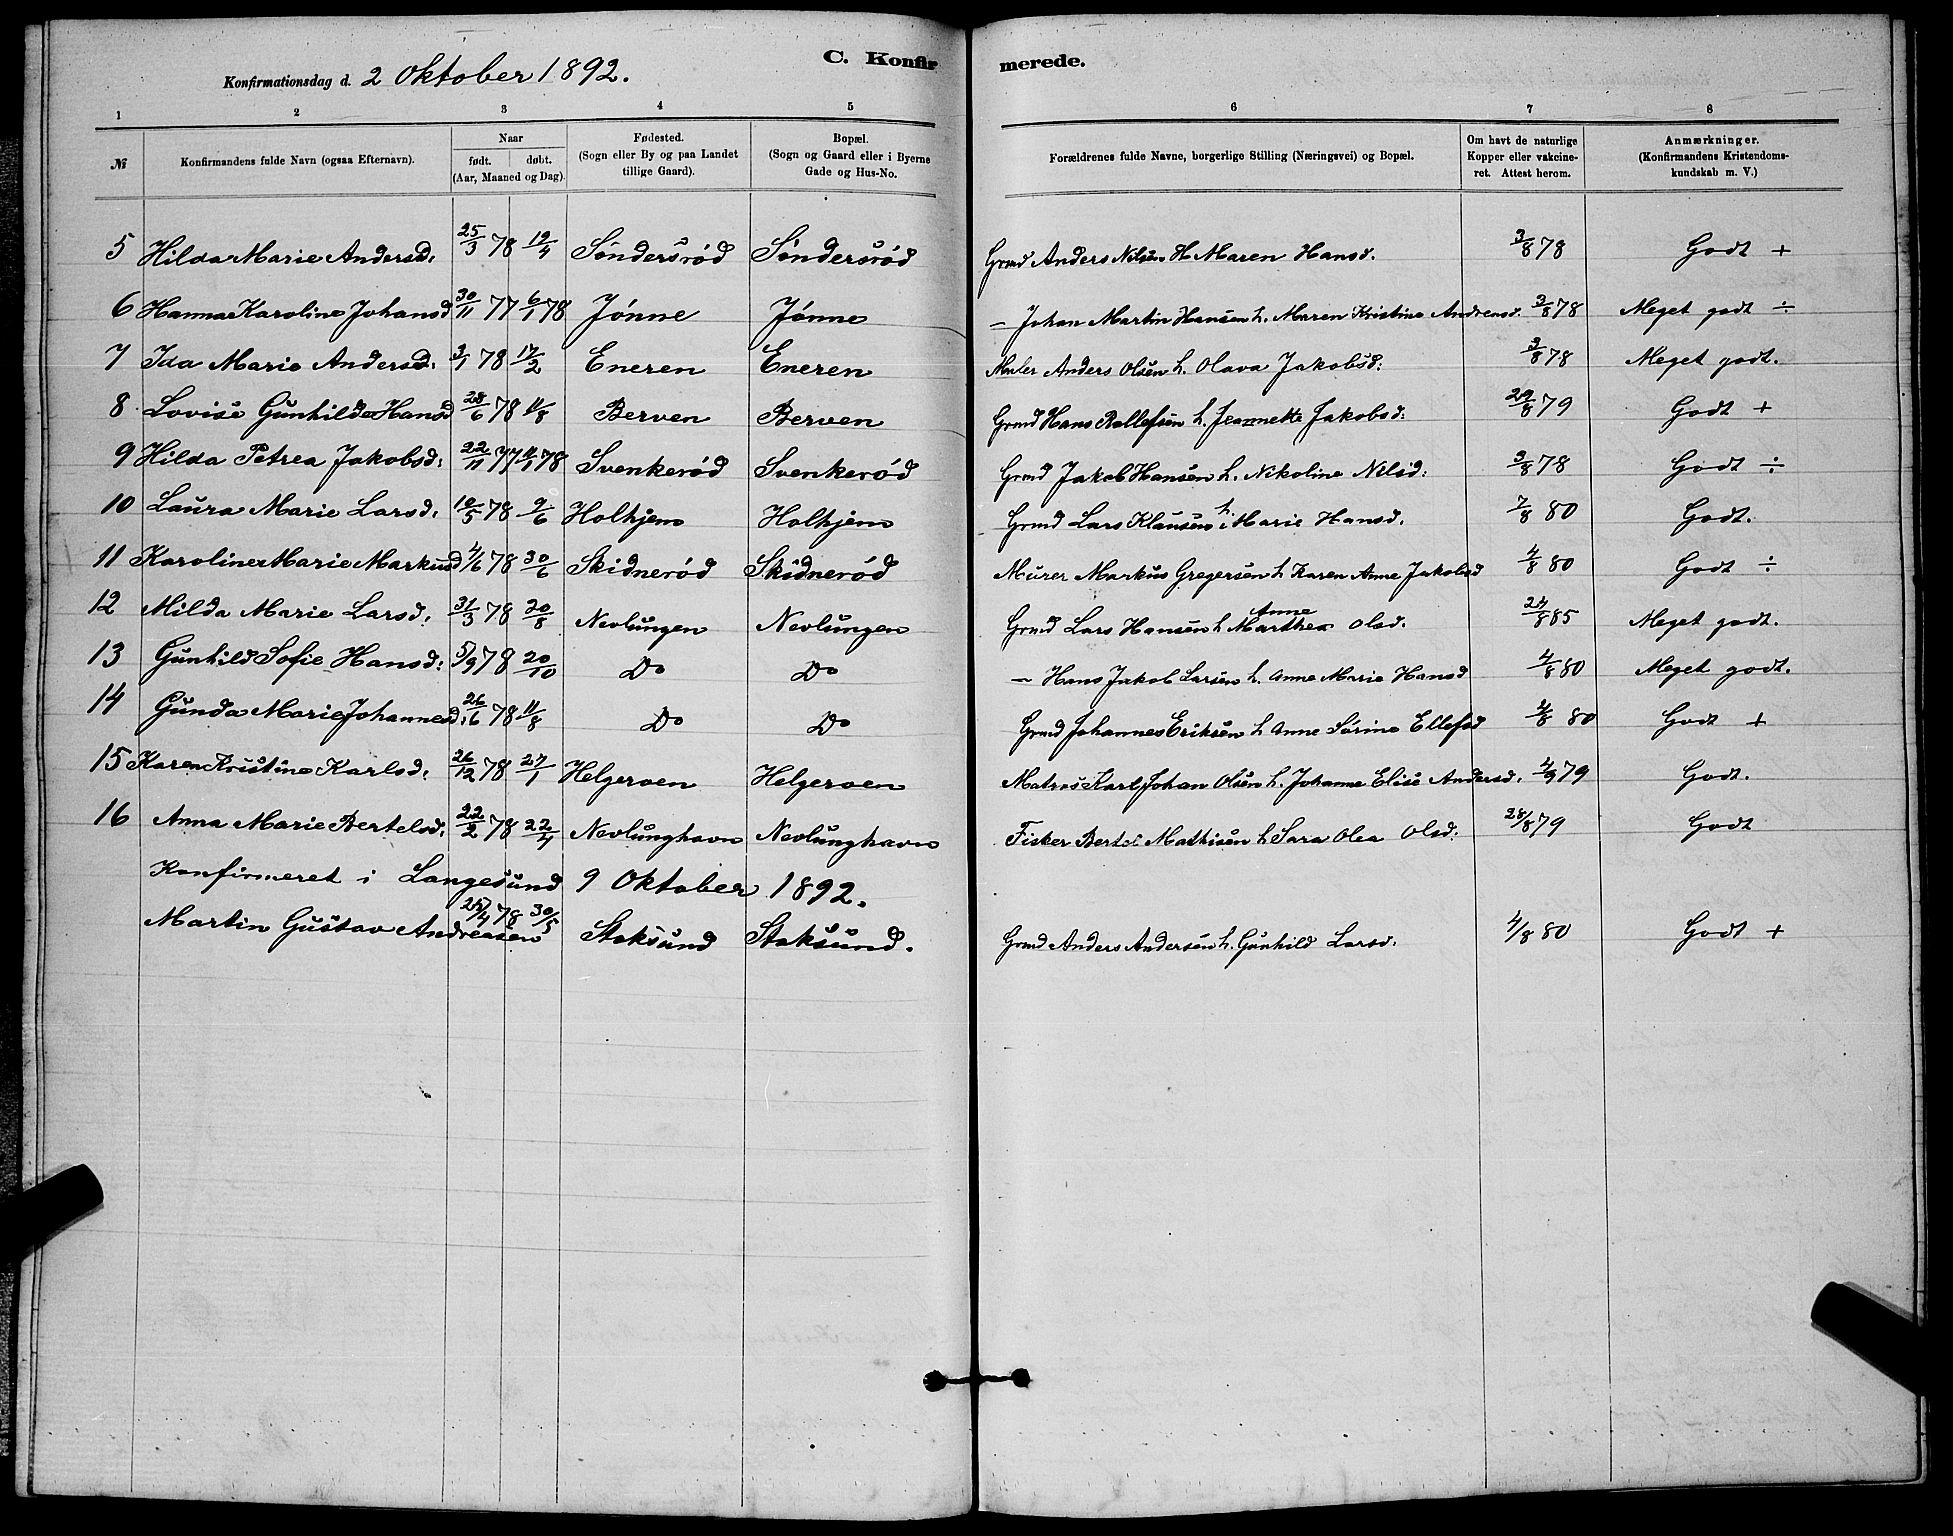 Konfirmationsdag d. 2 Oktober 1892. C. Konfir merede.
1 2 3 4 5 6 7 8
№ Konfirmandens fulde Navn (ogsaa Efternavn). Naar født. døbt. (Aar, Maaned og Dag). Fødested. (Sogn eller By og paa Landet tillige Gaard). Bopæl. (Sogn og Gaard eller i Byerne Gade og Hus-No. Forældrenes fulde Navne, borgerlige Stilling (Næringsvei) og Bopæl. Om havt de naturlige Kopper eller vakcineret. Attest herom. Anmærkninger. (Konfirmandens Kristendomskundskab m. V.)
5 Hilda Marie Andersd. 25/3 78 19/4 Söndersröd Söndersröd Grmd Anders Nilsen H Maren Hansd. 3/8 78 Godt +
6 Hanna Karoline Johansd 30/11 77 6/1 78 Jönne Jönne – Johan Martin Hansen h. Maren Kristine Andreasd. 3/8 78 Meget godt ÷
7 Ida Marie Andersd. 3/1 78 17/2 Eneren Eneren Maler Anders Olsen h. Olava Jakobsd: 3/8 78 Meget godt.
8 Lovise Gunhilda Hansd 28/6 78 11/8 Berven Berven Grmd Hans Rollefsen h. Jeannette Jakobsd: 29/8 79 Godt +
9 Hilda Petrea Jakobsd. 22/11 77 11/1 78 Svenkeröd Svenkeröd Grmd Jakob Hansen h. Nikoline Nilsd: 3/8 78 Godt ÷
10 Laura Marie Larsd. 10/5 78 9/6 Holtjem Holtjem Grmd Lars Klausen h. Marie Hansd. 7/8 80 Godt.
11 Karoline Marie Markusd 4/6 78 30/6 Skidneröd Skidneröd Murer Markus Gregersen h Karen Anne Jakobsd 4/8 80 Godt ÷
12 Milda Marie Larsd. 31/3 78 20/8 Nevlungen Nevlungen Grmd Lars Hansen h Anne Marthea Olsd. 24/8 85 Meget godt.
13 Gunhild Sofie Hansd: 5/9 78 20/10 Do Do – Hans Jakob Larsen h. Anne Marie Hansd 4/8 80 Meget godt.
14 Gunda Marie Johannesd. 26/6 78 11/8 Do Do Grmd Johannes Eriksen h Anne Sörine Ellefsd 4/8 80 Godt +
15 Karen Kristine Karlsd. 26/12 78 27/1 Helgeroen Helgeroen Matros Karl Johan Olsen h. Johanne Elise Andersd. 4/9 79 Godt.
16 Anna Marie Bertelsd. 22/2 78 22/4 Nevlunghavn Nevlunghavn Fisker Bertel Mathisen h Sara Olea Olsd. 28/8 79 Godt
Konfirmeret i Langesund 9 Oktober 1892.
Martin Gustav Andreasen 25/4 78 30/5 Stoksund Stoksund. Grmd Anders Andersen h. Gunhild Larsd. 4/8 80 Godt +